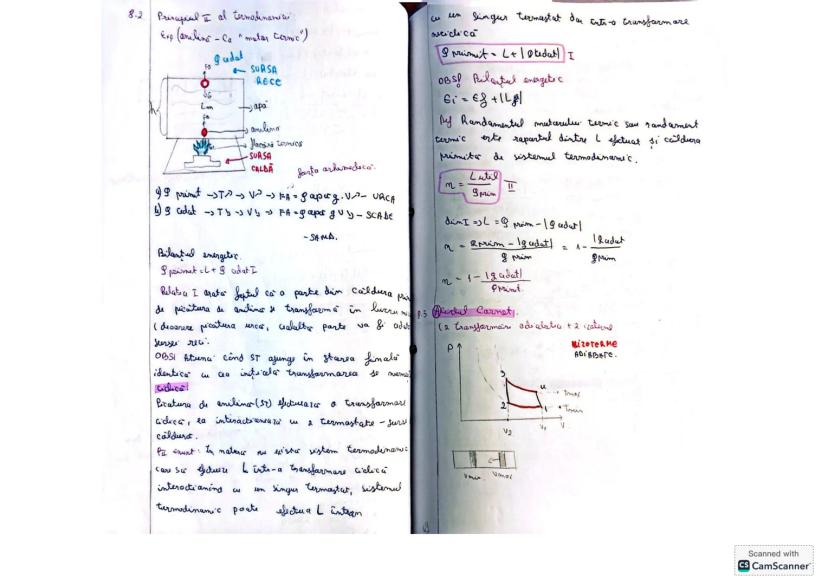 8.2 Principiul II al termodinamicii:
Exp (anilina - Ca "motor termic")
Q cedat
SURSA RECE
apă
anilină
Flacără termică
SURSA CALDĂ
forța arhimedică.
a) Q primit → T↗ → V↗ → FA = ρ apă g · V↗ - URCĂ
b) Q cedat → T↘ → V↘ → FA = ρ apă g V↘ - SCADE
Bilanțul energetic.
Q primit = L + Q cedat I
Relația I arată faptul că o parte din căldura
de picătura de anilină se transformă în lucru
(deoarece picătura urcă, cealaltă parte va fi
sursei reci.
OBS! Atunci când ST ajunge în starea finală
identică cu cea inițială transformarea se
ciclică.
Picătura de anilină (ST) efectuează o transformare
ciclică, ea interacționează cu 2 termostate - surse
căldură.
PII enunț: În natură nu există sistem termodinamic
care să efectueze L într-o transformare ciclică
interacționând cu un singur termostat, sistemul
termodinamic poate efectua L
cu un singur termostat dar într-o transformare
aciclică
Q primit = L + |Q cedat| I
OBS! Bilanțul energetic
Randamentul motorului termic sau randament
termic este raportul dintre L efectuat și căldura
primită de sistemul termodinamic.
η = L util / Q prim II
din I => L = Q prim - |Q cedat|
η = Q prim - |Q cedat| / Q prim = 1 - |Q cedat| / Q prim
η = 1 - |Q cedat| / Q primit.
Ciclul Carnot.
(2 transformări adiabatice + 2 izoterme
IZOTERME
ADIABATE.
P
3
4
2
1
Tmax
Tmin
V2
V1
V
Vmin
Vmax
Scanned with
CS CamScanner